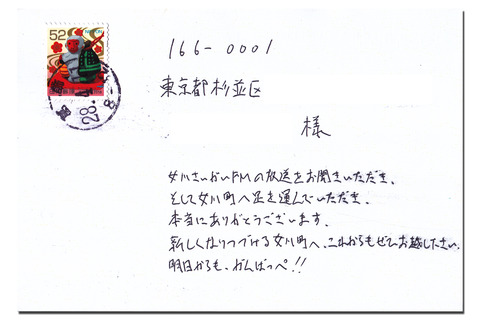 52
166-0001
28.4
東京都杉並区
様
女川さいがいFMの放送をお聞きいただき、
そして女川町へ足を運んでいただき、
本当にありがとうございます。
新しくなりつづける女川町へ、これからもぜひお越しください。
明日からも、がんばっぺ!!